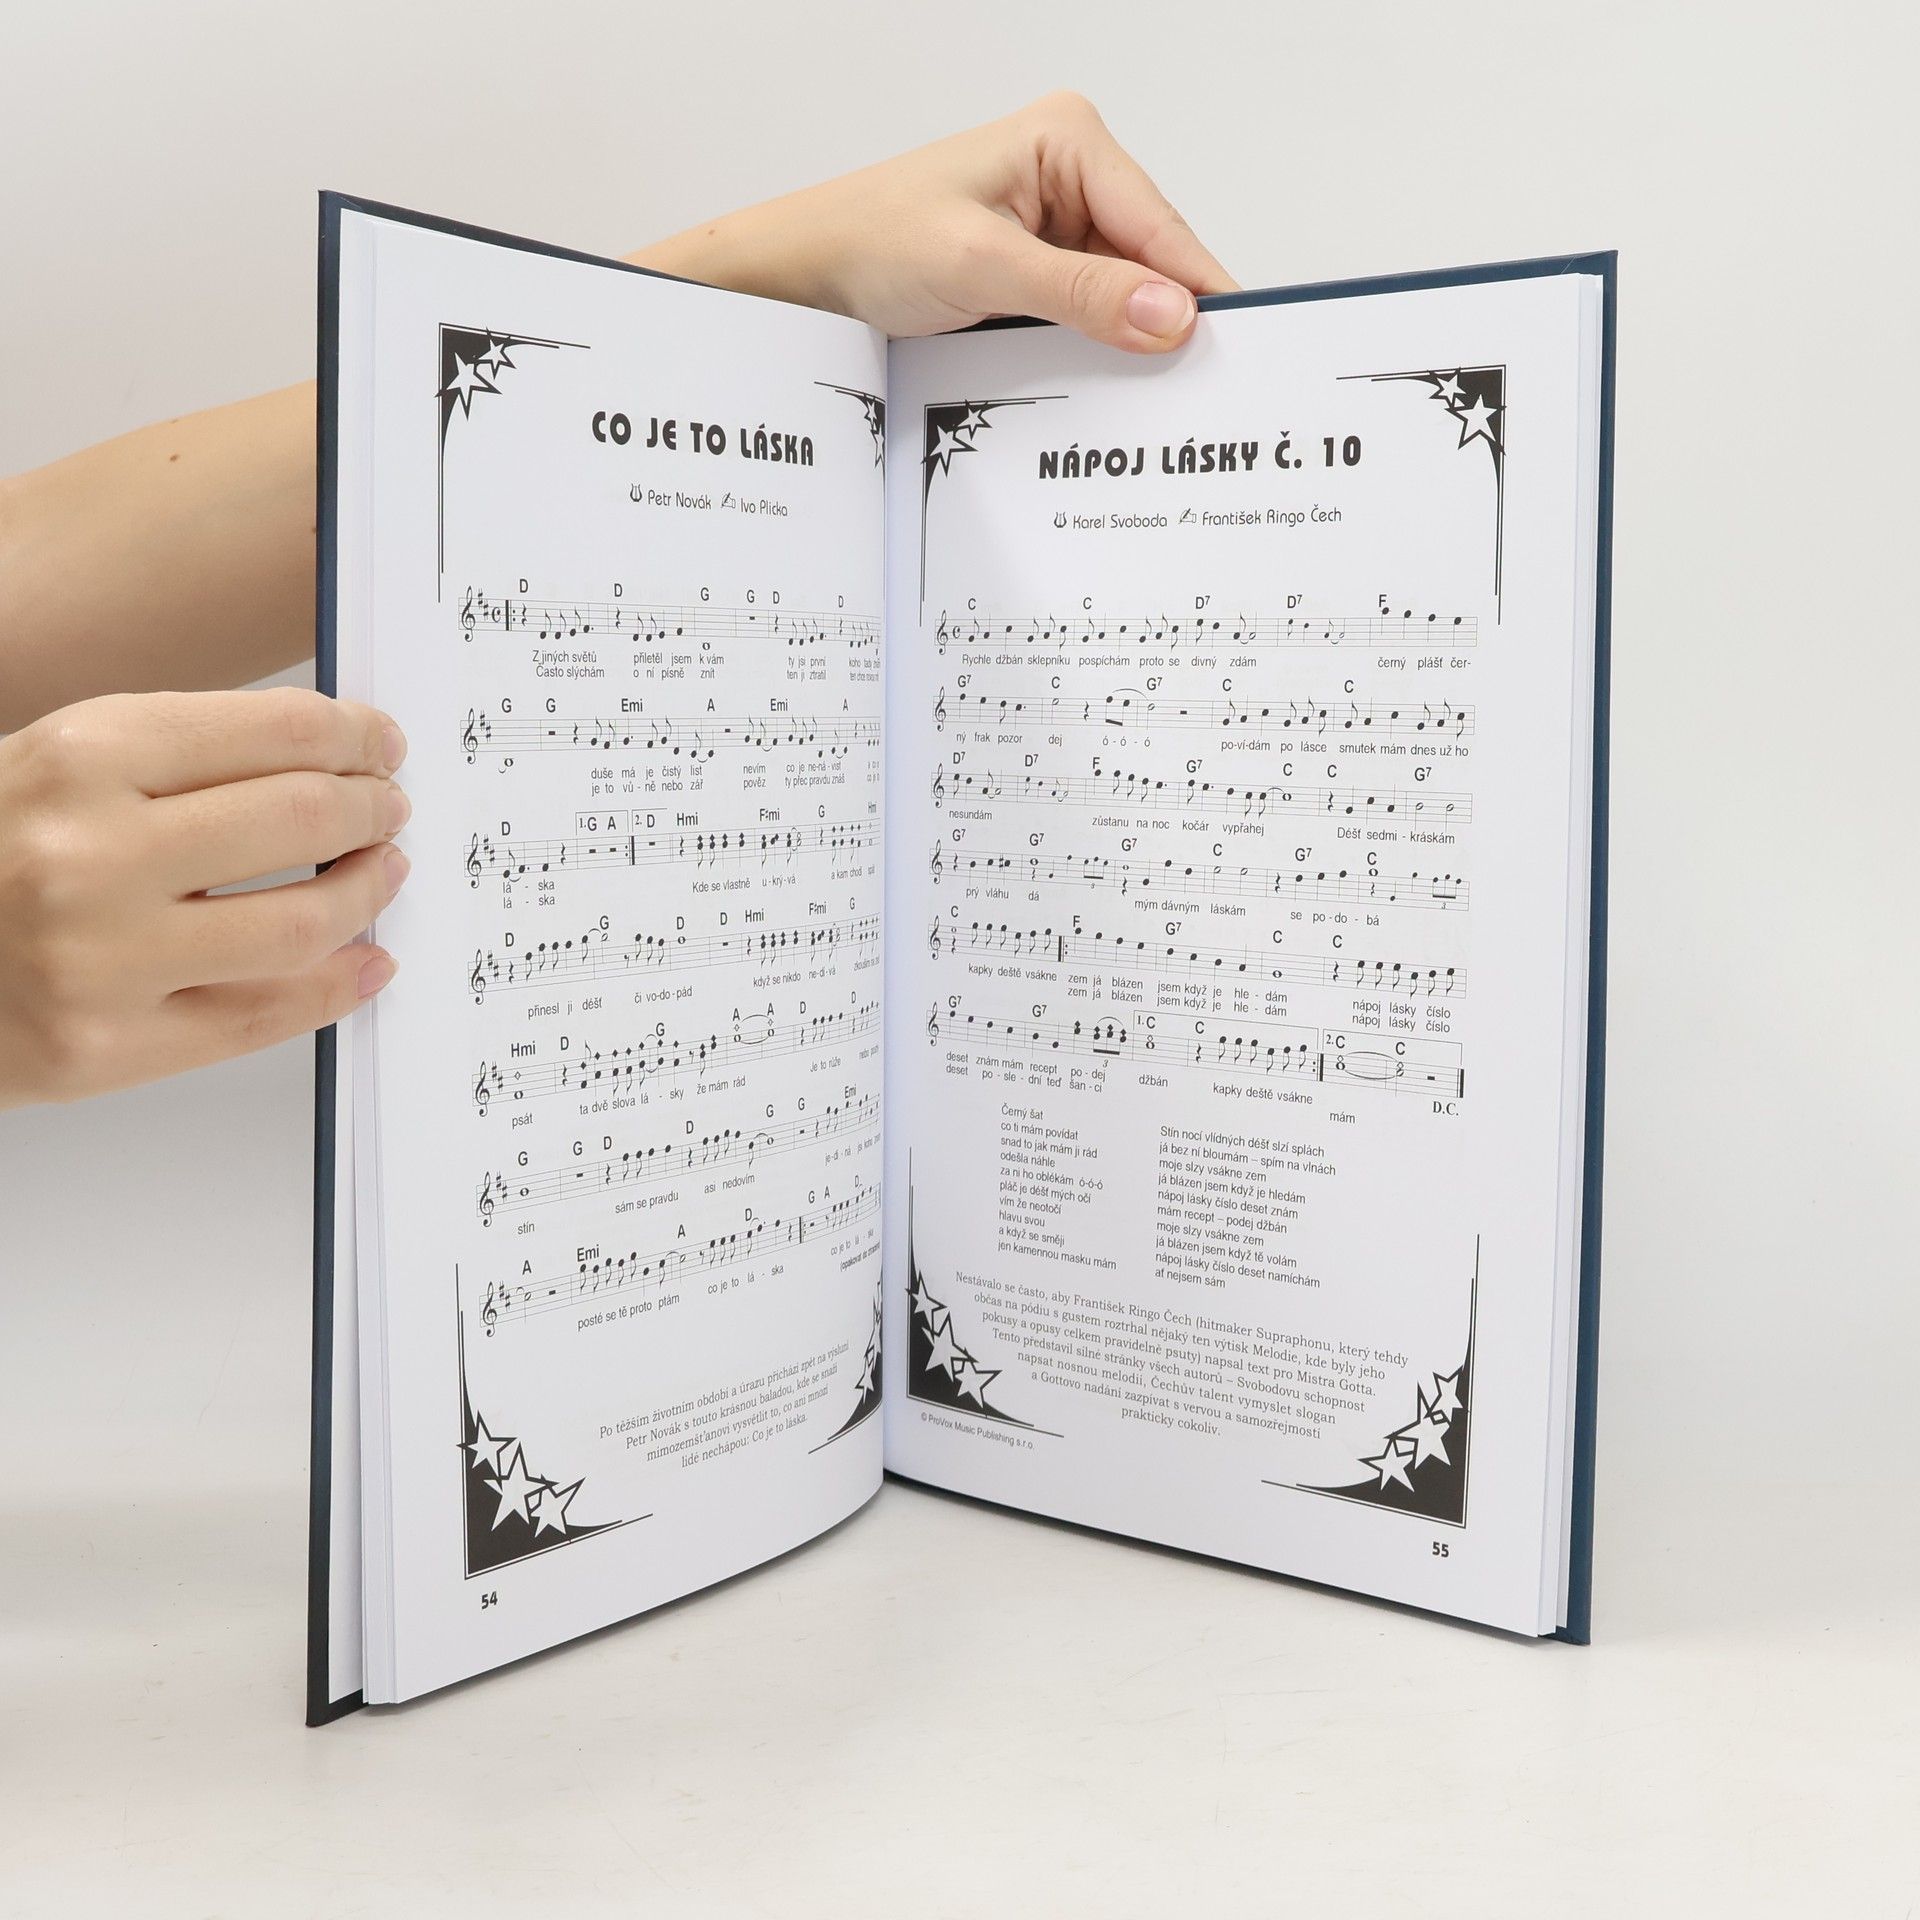 CO JE TO LÁSKA
Petr Novák Ivo Plicka
D D G G D D
Z jiných světů přiletěl jsem k vám ty jsi první koho tady
Často slýchám o ní písně znít ten ji ztratil ten chce
G G Emi A Emi A
duše má je čistý list nevím co je ne-ná-vist
je to vů - ně nebo zář pověz ty přec pravdu znáš
D 1. G A 2. D Hmi F♯mi G Hmi
lá - ska Kde se vlastně u-krý-vá a kam chodí spát
lá - ska
D G D D Hmi F♯mi G
přinesl ji déšť či vo-do-pád když se nikdo ne-dí-vá
Hmi D G A A D D
psát ta dvě slova lá - sky že mám rád Je to růže nebo
G G D D G G Emi
stín sám se pravdu asi nedovím je-di-ná jsi koho
A Emi A D G A D
posté se tě proto ptám co je to lá - ska co je to lá - ska
(opakovat do ztracena)
Po těžším životním období a úrazu přichází zpět na výsluní
Petr Novák s touto krásnou baladou, kde se snaží
mimozemšťanovi vysvětlit to, co ani mnozí
lidé nechápou: Co je to láska.
54
NÁPOJ LÁSKY Č. 10
Karel Svoboda František Ringo Čech
C C D7 D7 F
Rychle džbán sklepníku pospíchám proto se divný zdám černý plášť čer-
G7 C G7 C C
ný frak pozor dej ó-ó-ó po-ví-dám po lásce smutek mám dnes už ho
D7 D7 F G7 C C G7
nesundám zůstanu na noc kočár vypřahej Déšť sedmi - kráskám
G7 G7 G7 C G7 C
prý vláhu dá mým dávným láskám se po-do-bá
3 3
C F G7 C C
kapky deště vsákne zem já blázen jsem když je hle - dám nápoj lásky číslo
zem já blázen jsem když je hle - dám nápoj lásky číslo
G7 G7 1. C C 2. C C
3
deset znám mám recept po-dej džbán kapky deště vsákne mám
deset po-sle-dní teď šan-ci
D.C.
Černý šat
co ti mám povídat
snad to jak mám ji rád
odešla náhle
za ni ho oblékám ó-ó-ó
pláč je déšť mých očí
vím že neotočí
hlavu svou
a když se směji
jen kamennou masku mám
Stín nocí vlídných déšť slzí splách
já bez ní bloumám – spím na vlnách
moje slzy vsákne zem
já blázen jsem když je hledám
nápoj lásky číslo deset znám
mám recept – podej džbán
moje slzy vsákne zem
já blázen jsem když tě volám
nápoj lásky číslo deset namíchám
ať nejsem sám
Nestávalo se často, aby František Ringo Čech (hitmaker Supraphonu, který tehdy
občas na pódiu s gustem roztrhal nějaký ten výtisk Melodie, kde byly jeho
pokusy a opusy celkem pravidelně psuty) napsal text pro Mistra Gotta.
Tento představil silné stránky všech autorů – Svobodovu schopnost
napsat nosnou melodii, Čechův talent vymyslet slogan
a Gottovo nadání zazpívat s vervou a samozřejmostí
prakticky cokoliv.
© ProVox Music Publishing s.r.o.
55